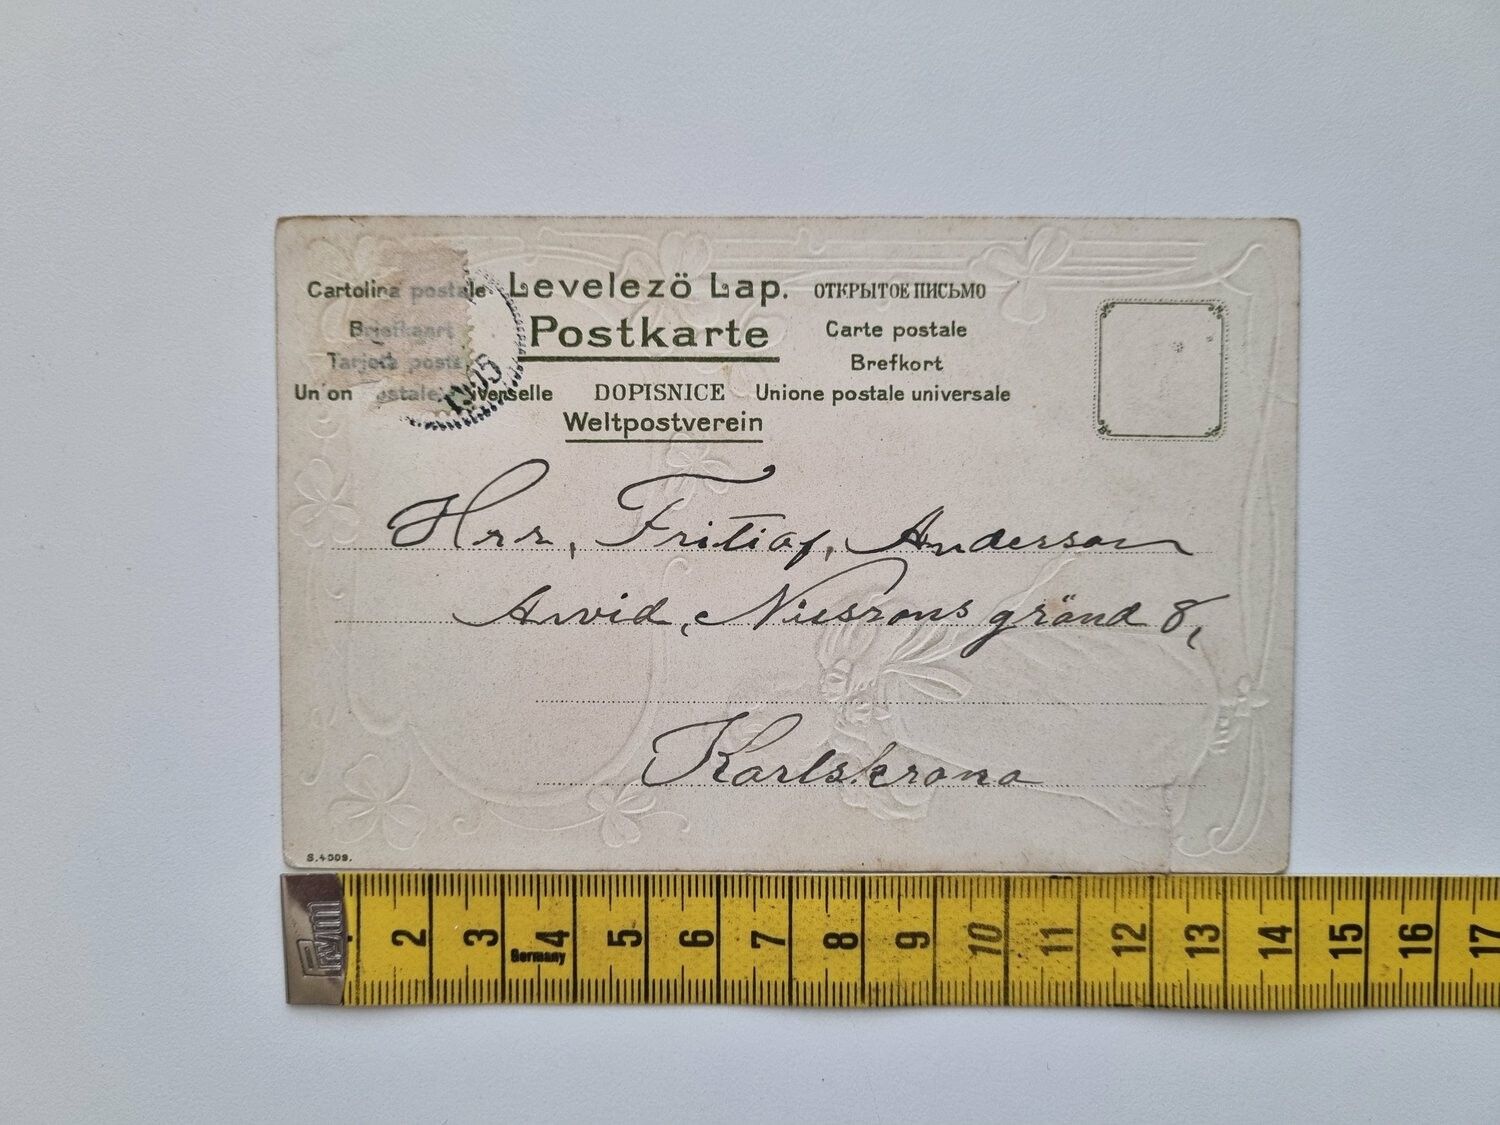 Cartolina postale Levelező Lap. ОТКРЫТОЕ ПИСЬМО
Briefkaart Postkarte Carte postale
Tarjeta posta Brefkort
Un on ostale verselle DOPISNICE Unione postale universale
Weltpostverein
1905
Herr, Fritiof, Anderson
Arvid, gränd 8,
Karlskrona
S.4009.
Prym
2 3 4 5 6 7 8 9 10 11 12 13 14 15 16 17
Germany